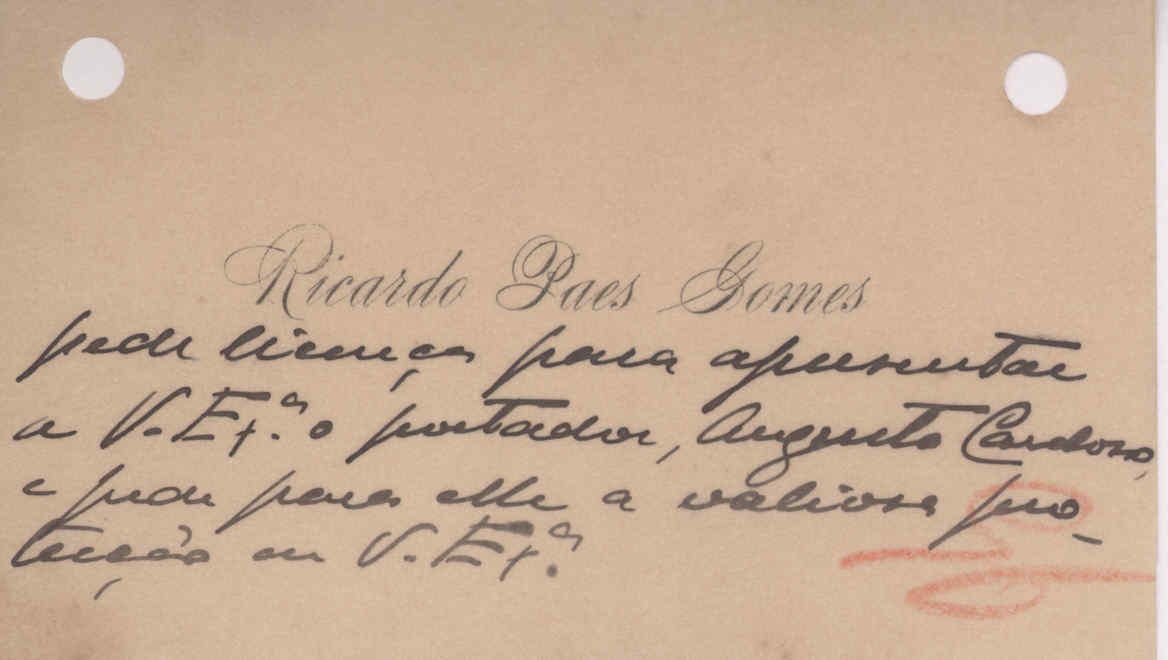 Ricardo Paes Gomes
pede licença para apresentar
a V. Ex.ª o portador, Augusto Cardoso,
e pede para elle a valiosa pro-
tecção de V. Ex.ª